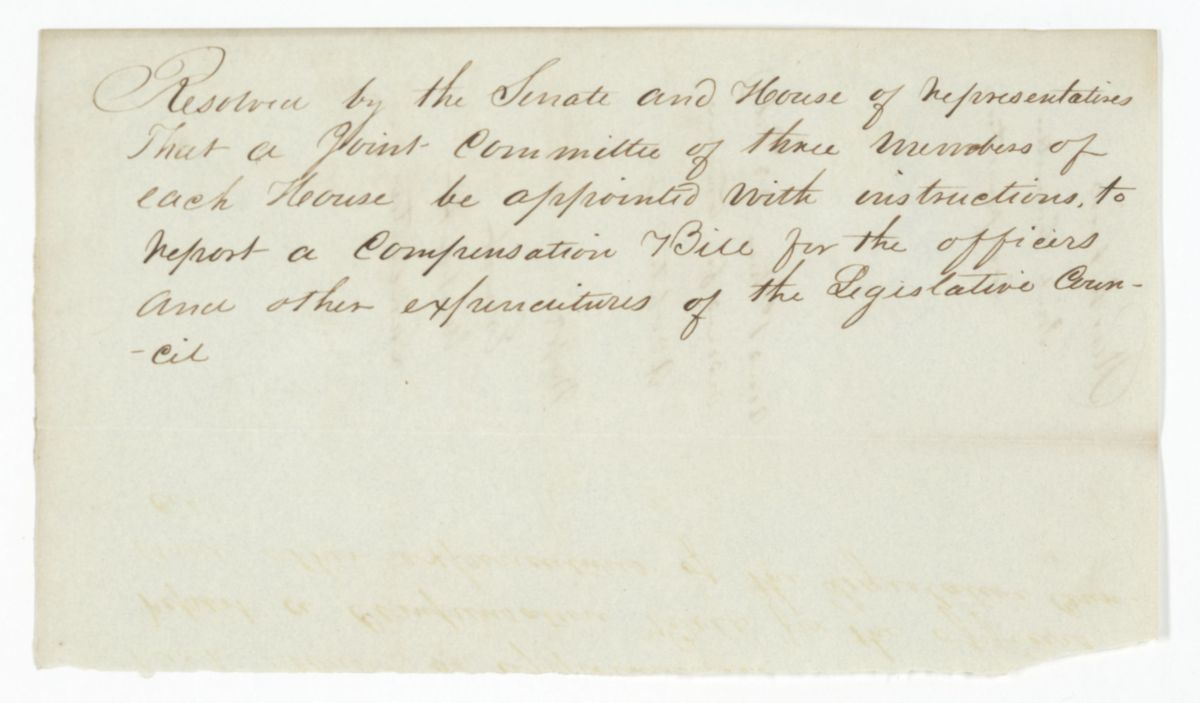 Resolved by the Senate and House of representatives
That a Joint Committee of three members of
each House be appointed with instructions, to
report a Compensation Bill for the officers
and other expenditures of the Legislative Coun-
-cil